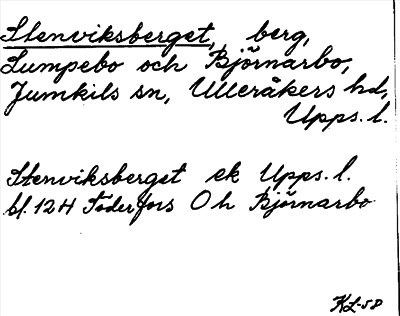 Stenviksberget, berg,
Lumpebo och Björnarbo,
Jumkils sn, Ulleråkers hd,
Upps. l.
Stenviksberget ek Upps. l.
bl. 124 Söderfors O h Björnarbo
KL-58